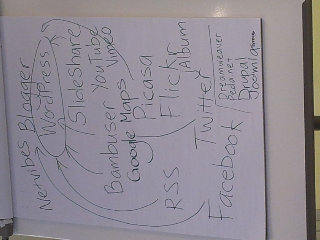 Netvibes Blogger
WordPress
Slideshare
Bambuser YouTube
Google Maps Vimeo
Picasa
Flickr
Album
RSS
Twitter
Facebook
Dreamweaver
Peda.net
Drupal
Joomla